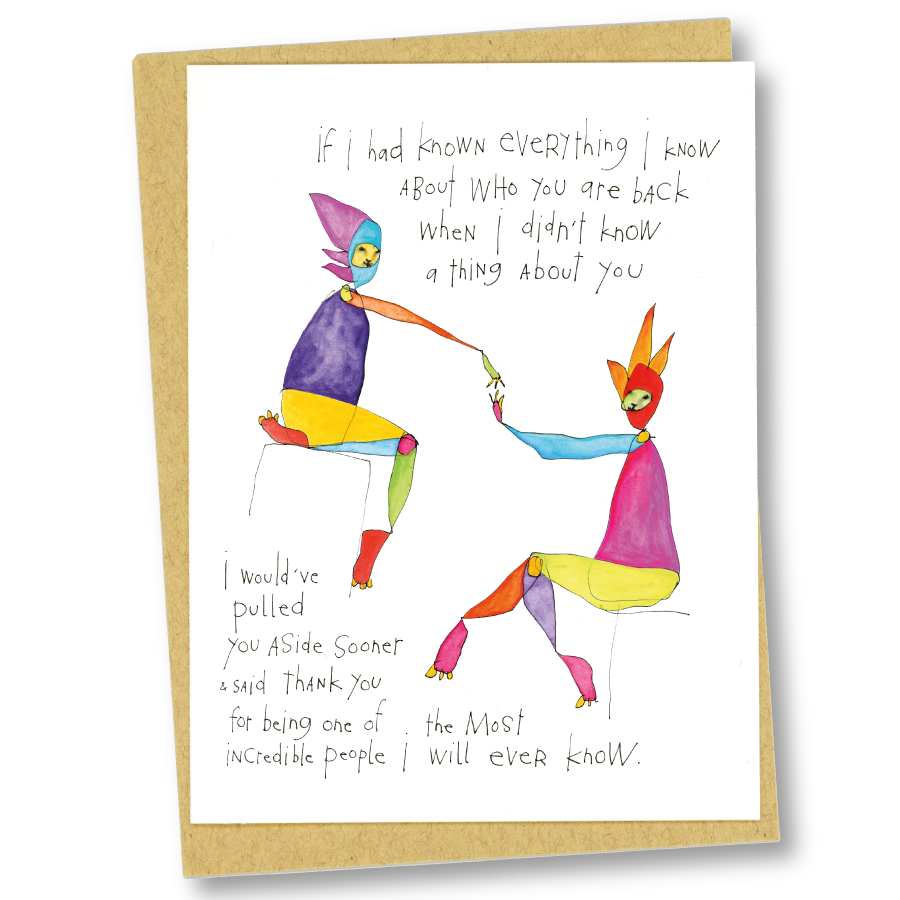 if i had known everything i know
About who you are back
when i didn't know
a thing about you
i would've
pulled
you aside sooner
& said thank you
for being one of the most
incredible people i will ever know.